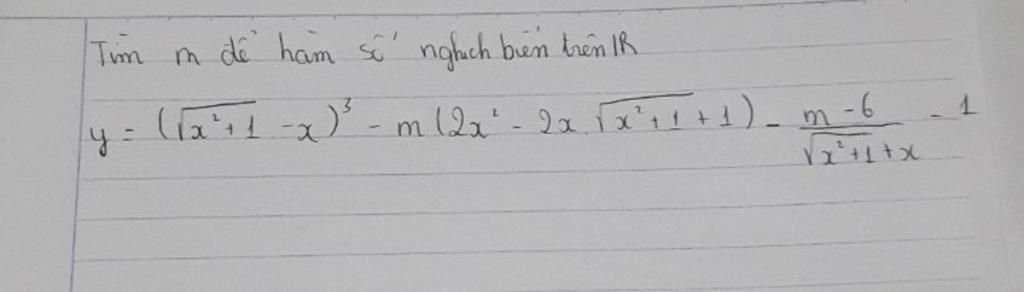 Tìm m để hàm số nghịch biến trên R
y = (√(x²+1) - x)³ - m(2x² - 2x√(x²+1) + 1) - (m-6)/(√(x²+1) + x) - 1